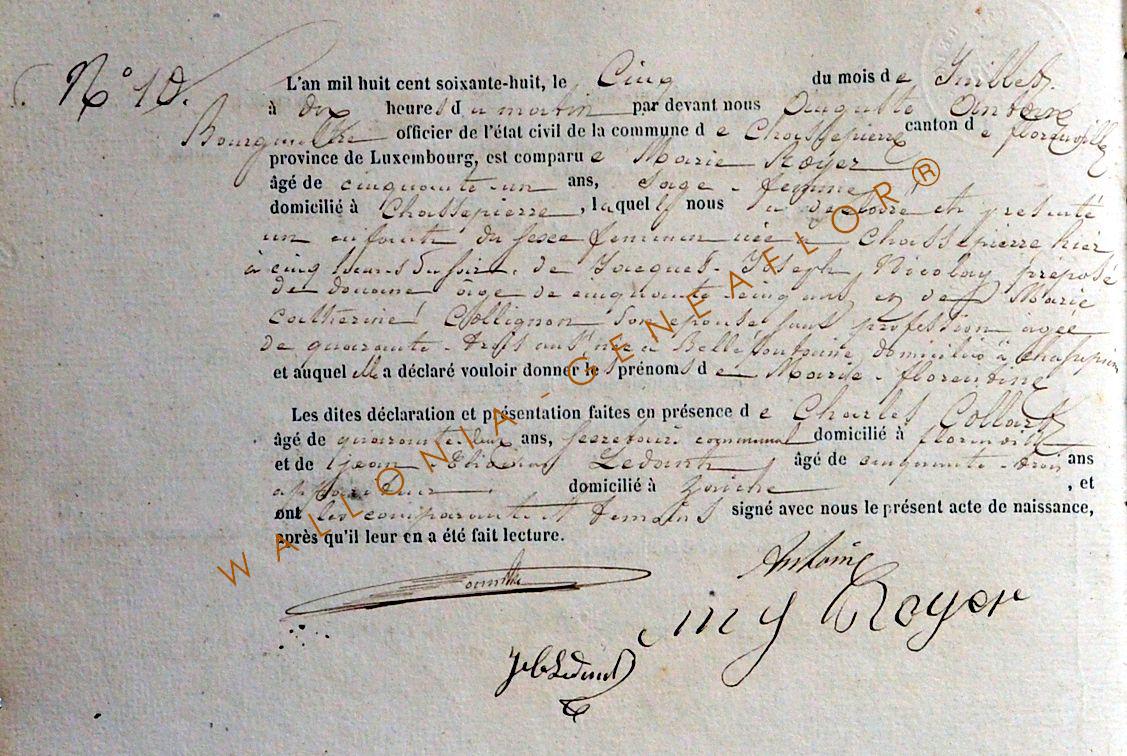 N° 10.
L'an mil huit cent soixante-huit, le Cinq du mois de Juillet
à dix heures du matin par devant nous Auguste Antoine
officier de l'état civil de la commune de Chassepierre canton de florenville
province de Luxembourg, est comparue Marie Royer
âgé de cinquante-un ans, sage-femme
domicilié à Chassepierre, laquelle nous a déclaré et présenté
un enfant du sexe feminin née à Chassepierre hier
à cinq heures du soir, de Jacques-Joseph Nicolay préposé
de douane âgé de cinquante-cinq ans et de Marie
catherine Collignon son épouse sans profession agée
de quarante-trois ans née à Bellefontaine domiciliés à Chassepierre
et auquel elle a déclaré vouloir donner les prénoms de Marie-florentine
Les dites déclaration et présentation faites en présence de Charles Collart
âgé de quarante-deux ans, secretaire communal domicilié à florenville
et de jean Ledant âgé de cinquante-trois ans
domicilié à , et
ont les comparante et temoins signé avec nous le présent acte de naissance,
après qu'il leur en a été fait lecture.
Antoine
m j Royer
WALLONIA - GENEALOR®